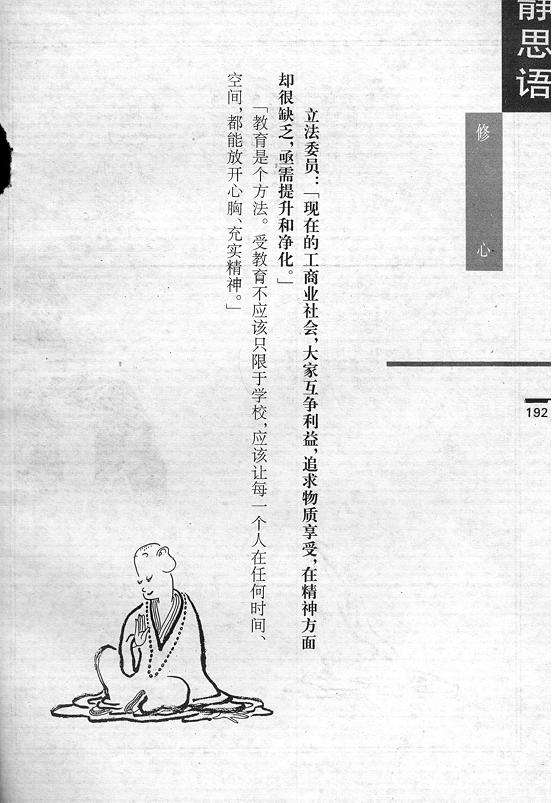 静思语
修心
立法委员：「现在的工商业社会，大家互争利益，追求物质享受，在精神方面
却很缺乏，亟需提升和净化。」
「教育是个方法。受教育不应该只限于学校，应该让每一个人在任何时间、
空间，都能放开心胸、充实精神。」
192